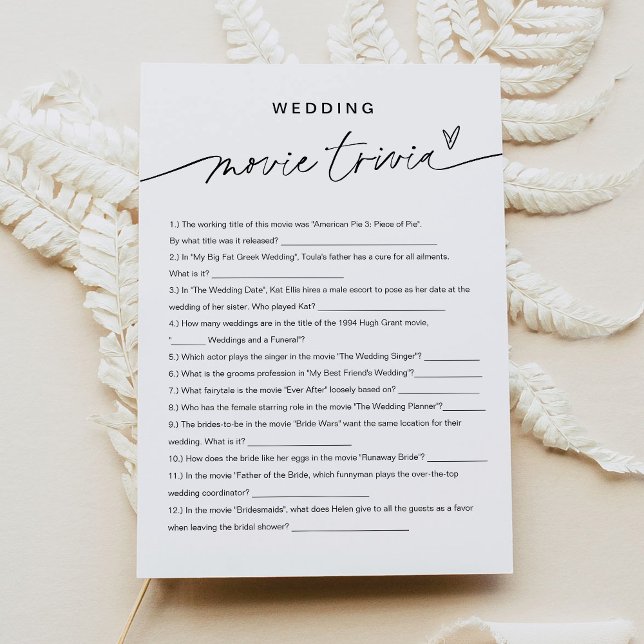 WEDDING
movie trivia
1.) The working title of this movie was "American Pie 3: Piece of Pie".
By what title was it released? ____________
2.) In "My Big Fat Greek Wedding", Toula's father has a cure for all ailments.
What is it? ____________
3.) In "The Wedding Date", Kat Ellis hires a male escort to pose as her date at the
wedding of her sister. Who played Kat? ____________
4.) How many weddings are in the title of the 1994 Hugh Grant movie,
"_______ Weddings and a Funeral"?
5.) Which actor plays the singer in the movie "The Wedding Singer"? ____________
6.) What is the grooms profession in "My Best Friend's Wedding"?____________
7.) What fairytale is the movie "Ever After" loosely based on? ____________
8.) Who has the female starring role in the movie "The Wedding Planner"?____________
9.) The brides-to-be in the movie "Bride Wars" want the same location for their
wedding. What is it? ____________
10.) How does the bride like her eggs in the movie "Runaway Bride"? ____________
11.) In the movie "Father of the Bride, which funnyman plays the over-the-top
wedding coordinator? ____________
12.) In the movie "Bridesmaids", what does Helen give to all the guests as a favor
when leaving the bridal shower? ____________